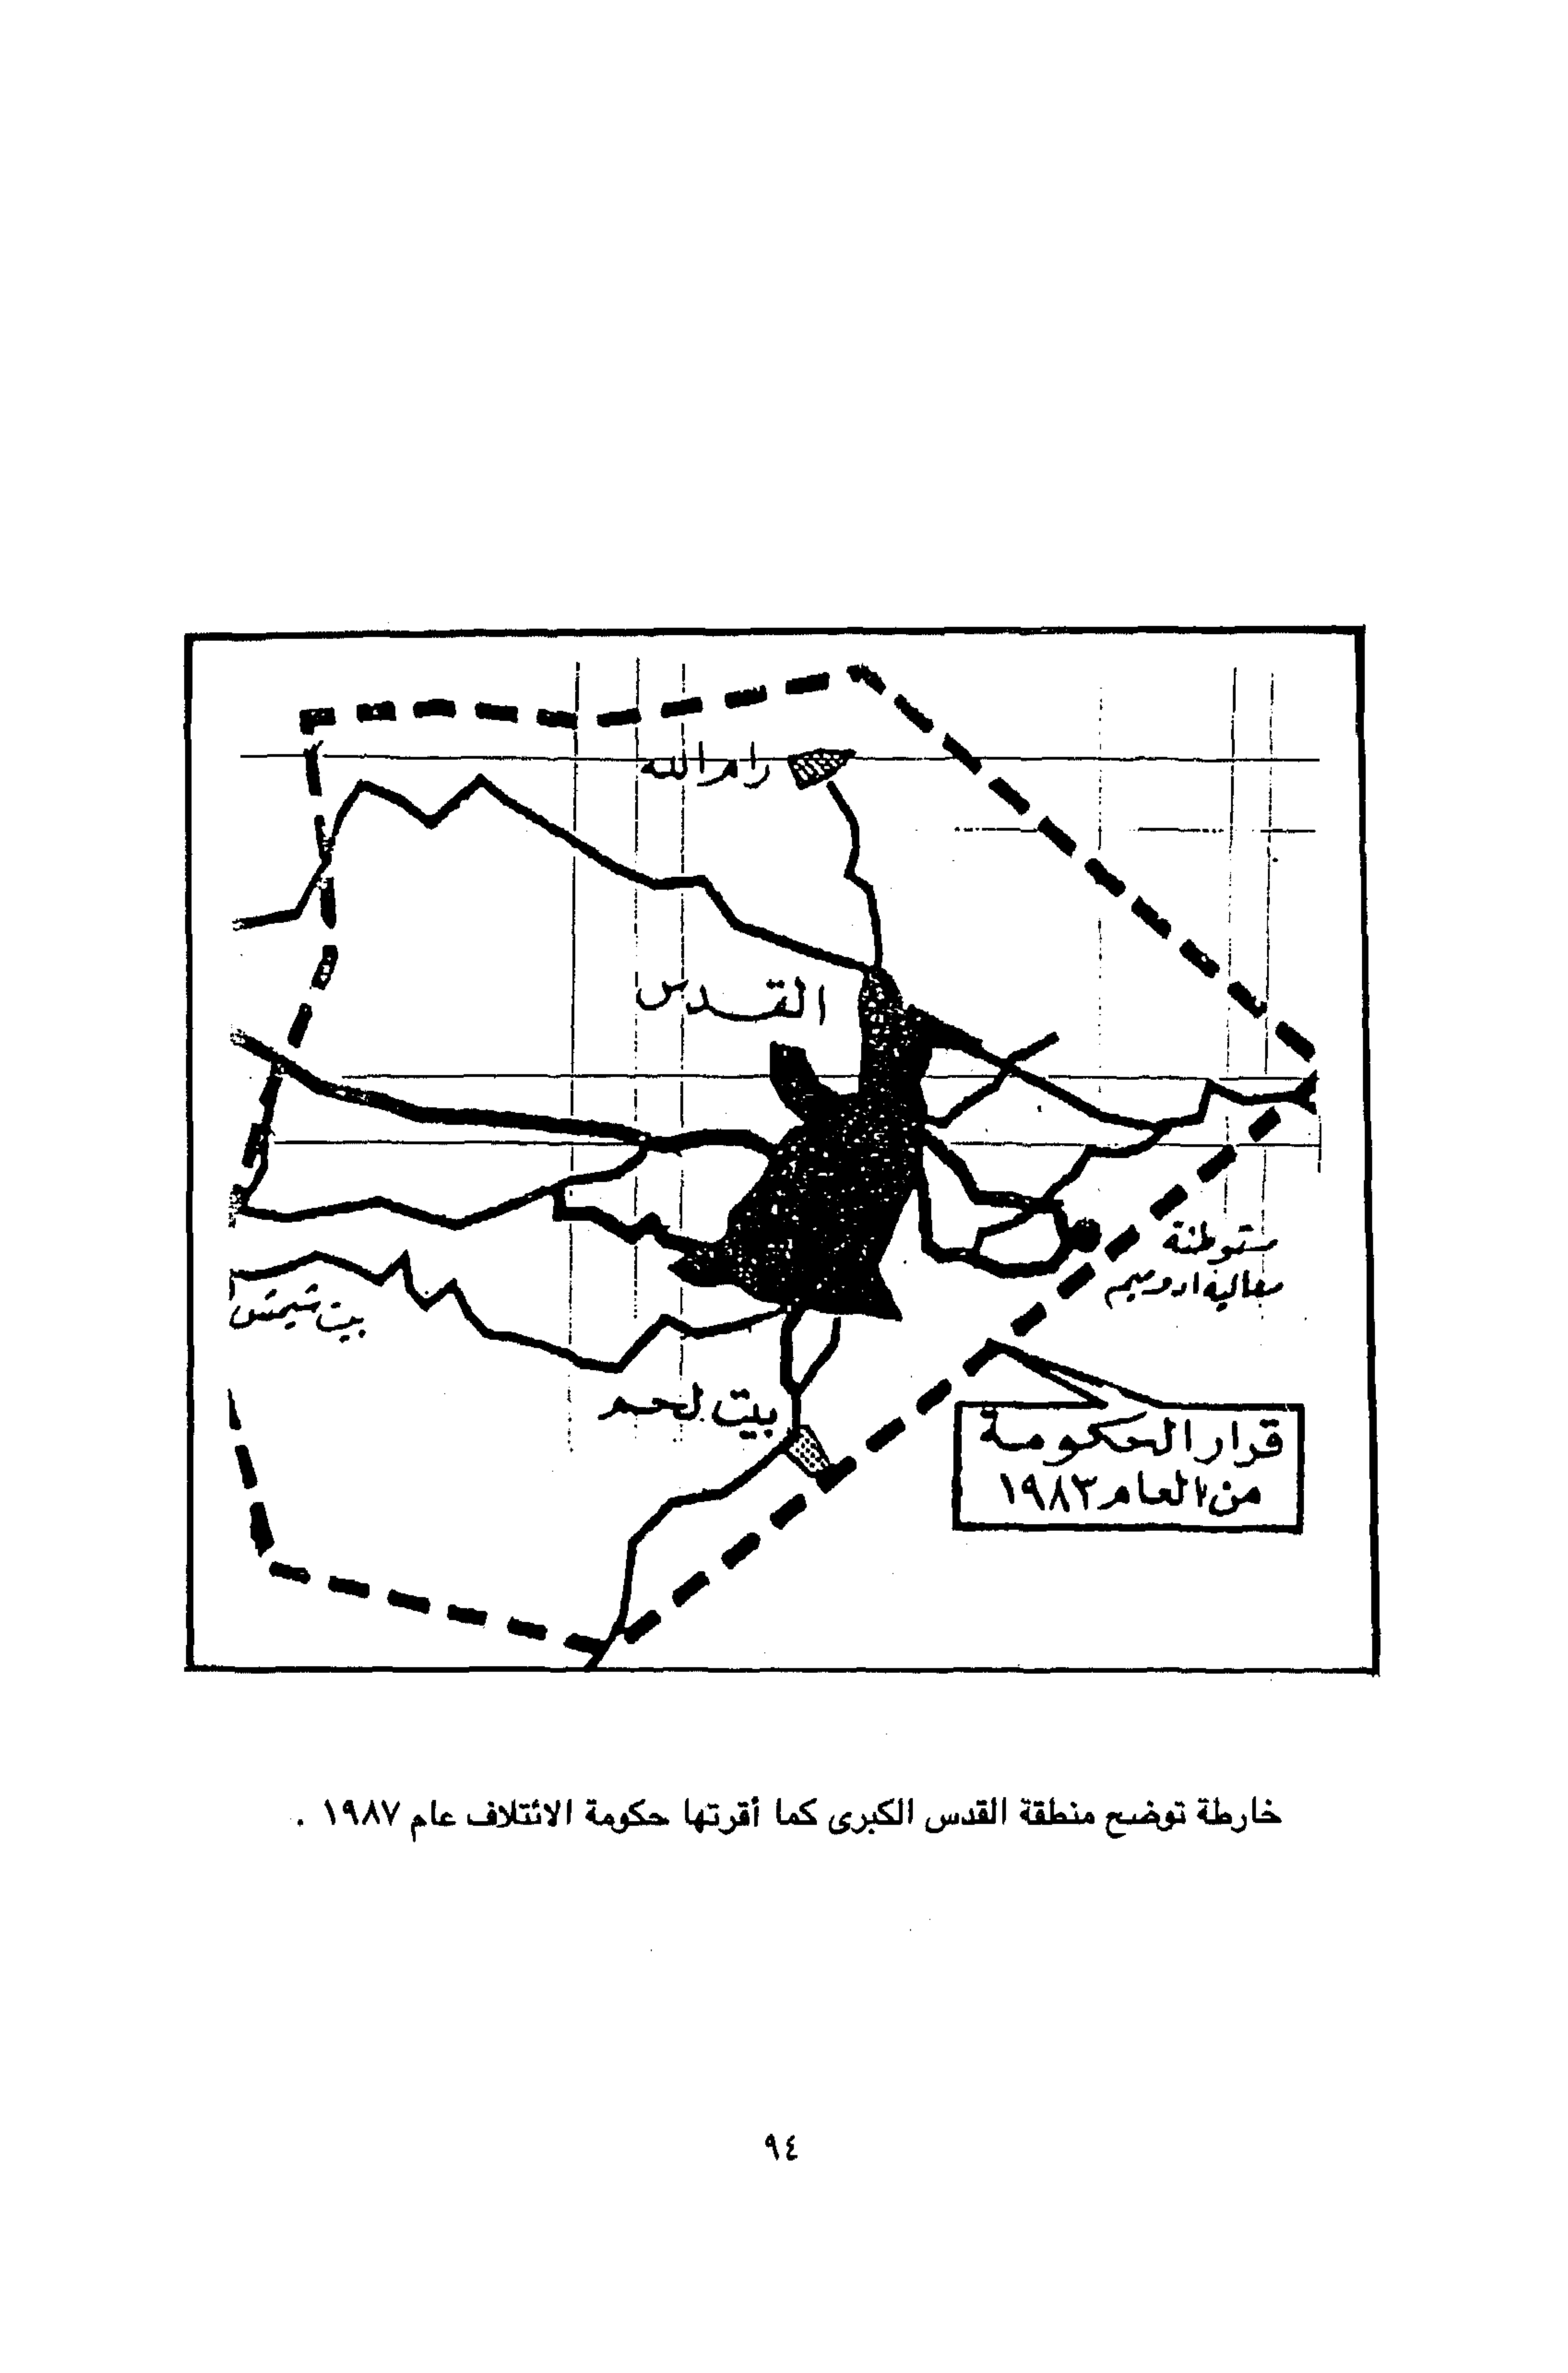 رام الله
القدس
مستوطنة
معاليه ادوميم
بيت شيمش
بيت لحم
قرار الحكومة
من العام ١٩٨٣
خارطة توضح منطقة القدس الكبرى كما أقرتها حكومة الائتلاف عام ١٩٨٧ .
٩٤